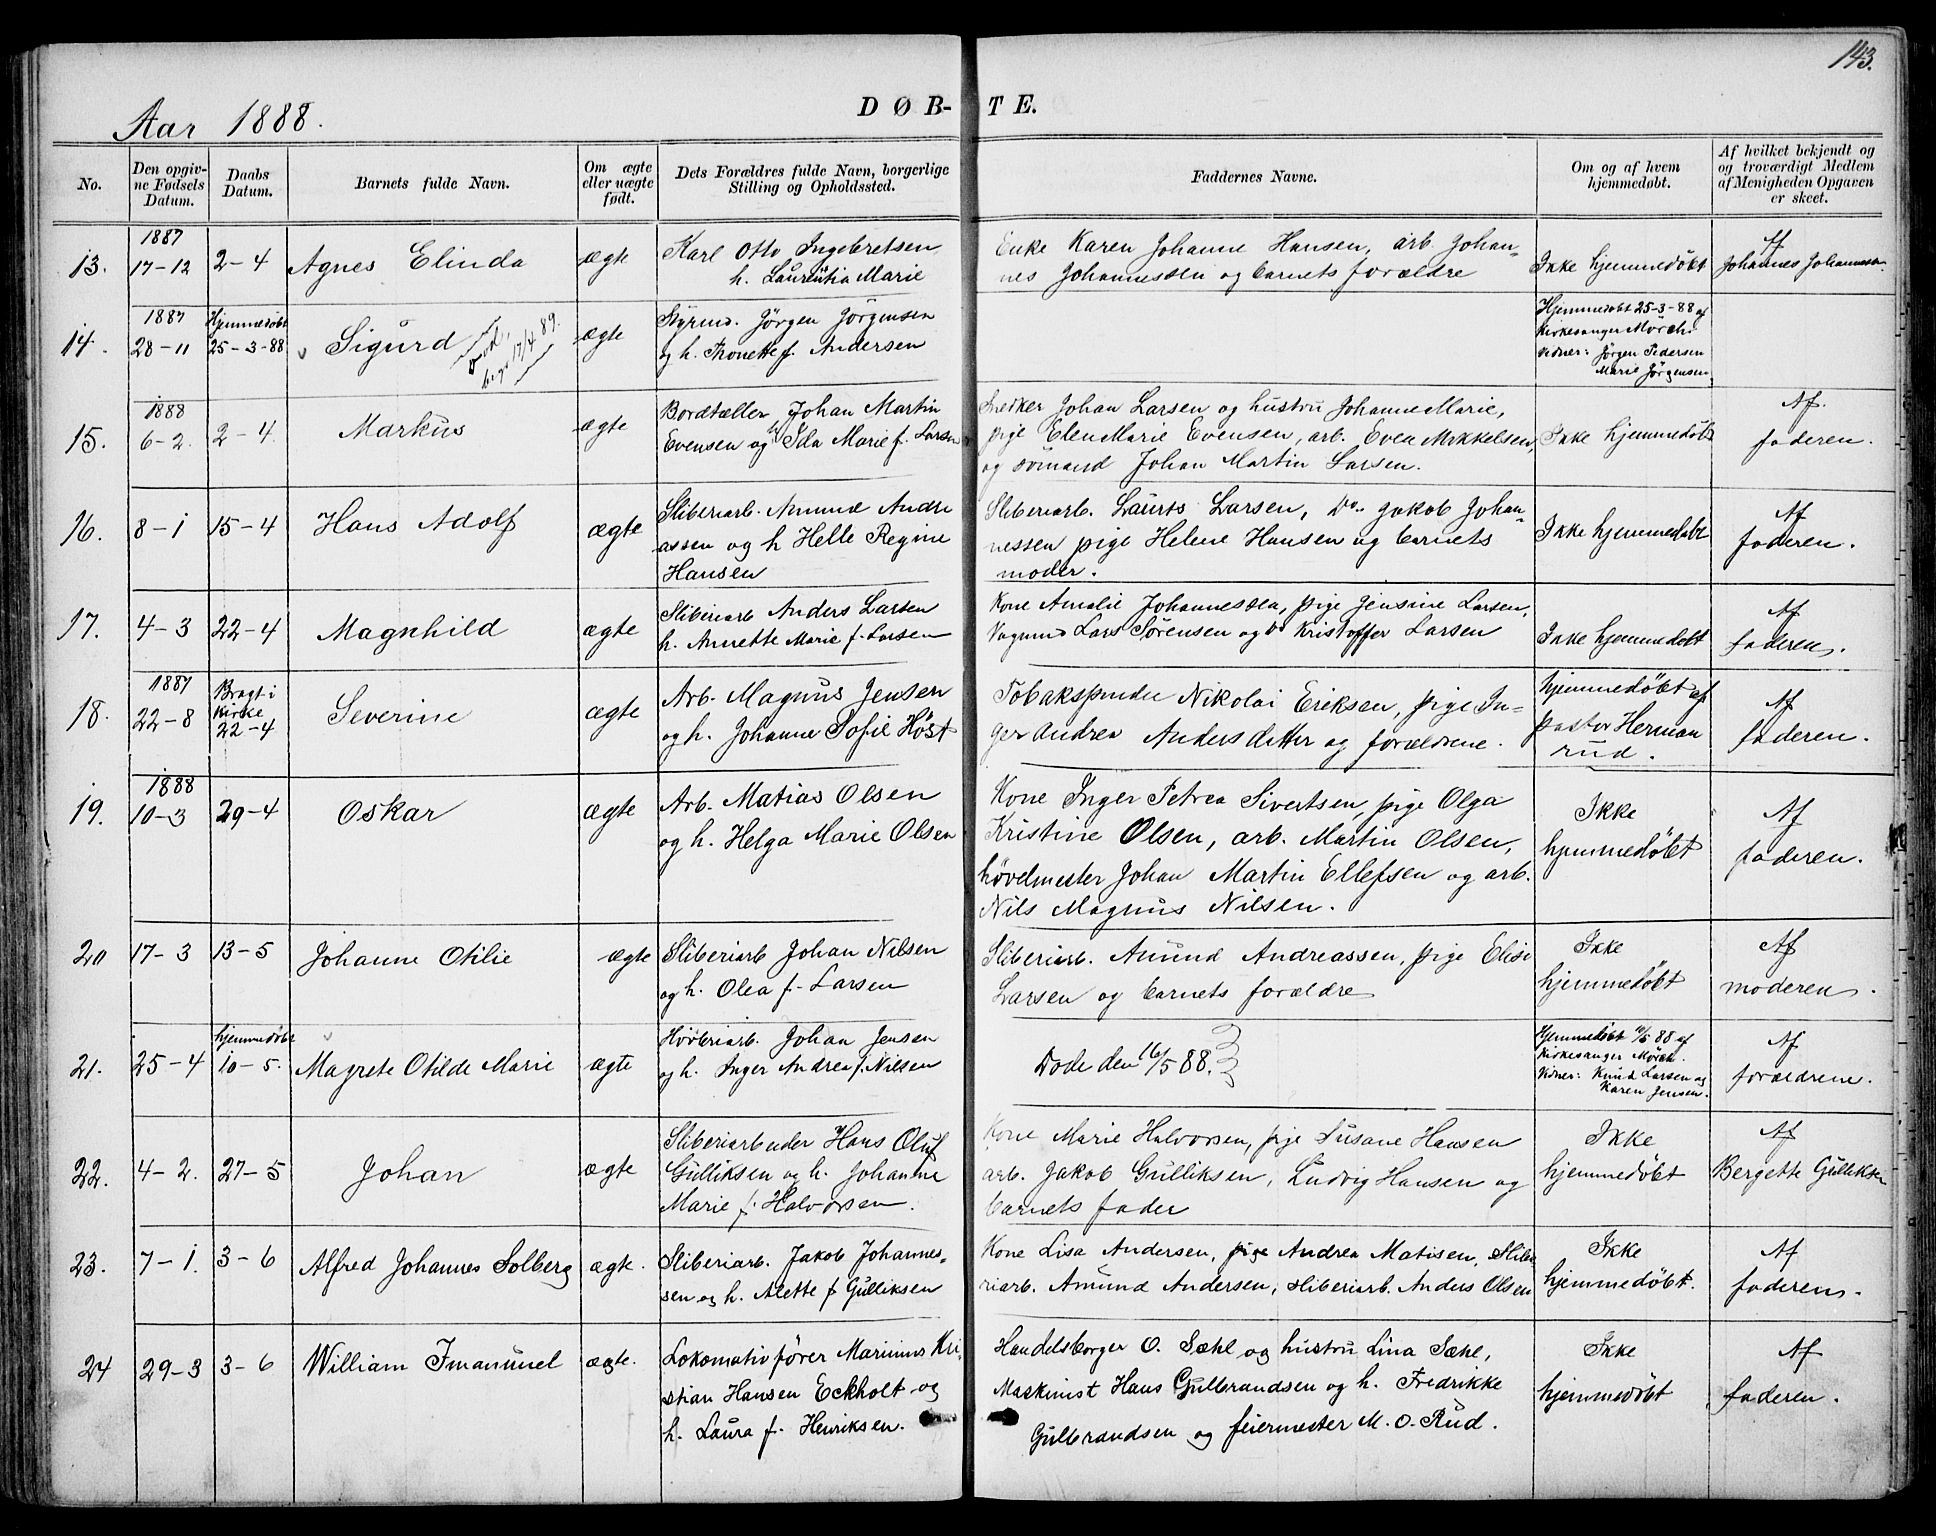 143.
Aar 1888.
DØB-TE.
No.
Den opgiv-
ne Fødsels
Datum.
Daabs
Datum.
Barnets fulde Navn.
Om ægte
eller uægte
født.
Dets Forældres fulde Navn, borgerlige
Stilling og Opholdssted.
Faddernes Navne.
Om og af hvem
hjemmedøbt.
Af hvilket bekjendt og
og troværdigt Medlem
af Menigheden Opgaven
er skeet.
13.
1887
17-12
2-4
Agnes Elinda
ægte
Karl Otto Ingebretsen
h. Laurentia Marie
Enke Karen Johanne Hansen, arb. Johan=
nes Johannessen og barnets forældre
Ikke hjemmedøbt
Af
Johannes Johannessen.
14.
1887
28-11
Hjemmedøbt
25-3-88
Sigurd
død,
begr 17/4 89.
ægte
Styrmd. Jörgen Jörgensen
og h. Thonette f. Andersen
Hjemmedøbt 25-3-88 af
Kirkesanger Mörch.
Vidner: Jörgen Pedersen
Marie Jörgensen.
15.
1888
6-2.
2-4.
Markus
ægte
Bordtæller Johan Martin
Evensen og h. Ida Marie f. Larsen
Snedker Johan Larsen og hustru Johanne Marie,
pige Elen Marie Evensen, arb. Even Mikkelsen,
og sömand Johan Martin Larsen.
Ikke hjemmedøbt
Af.
faderen.
16.
8-1
15-4
Hans Adolf
ægte
Sliberiarb. Amund Andre
assen og h Helle Regine
Hansen
Sliberiarb. Laurits Larsen, Do. Jakob Johan=
nessen pige Helene Hansen og barnets
moder.
Ikke hjemmedøbt
Af
faderen.
17.
4-3
22-4
Magnhild
ægte
Sliberiarb Anders Larsen
h. Annette Marie f. Larsen
Kone Amalie Johannessen, pige Jensine Larsen,
Vognmd Lars Sørensen og Do Kristoffer Larsen
Ikke hjemmedøbt
Af
faderen.
18.
1887
22-8
Bragt i
Kirke
22-4
Severine
ægte
Arb. Magnus Jensen
og h. Johanne Sofie Höst
Tobakspinder Nikolai Eriksen, pige In=
ger Andrea Andersdatter og forældrene.
hjemmedøbt af
pastor Herman
rud.
Af
faderen.
19.
1888
10-3
29-4
Oskar
ægte
Arb. Matias Olsen
og h. Helga Marie Olsen
Kone Inger Petrea Sivertsen, pige Olga
Kristine Olsen, arb. Martin Olsen,
hövelmester Johan Martin Ellefsen og arb.
Nils Magnus Nilsen.
Ikke
hjemmedøbt
Af
faderen.
20
17-3
13-5
Johanne Otilie
ægte
Sliberiarb Johan Nilsen
og h. Olea f. Larsen
Sliberiarb. Amund Andreassen, pige Elise
Larsen og barnets forældre
Ikke
hjemmedøbt
Af
moderen.
21.
25-4
hjemmedøbt
10-5.
Magrete Otilde Marie
ægte
Hövleriarb. Johan Jensen
og h. Inger Andrea f. Nilsen
Døde den 16/5 88.
Hjemmedøbt 10/5 88 af
Kirkesanger Mörch.
Vidner: Knud Larsen og
Karen Jensen.
Af
forældrene.
22.
4-2.
27-5
Johan
ægte
Sliberiarbeider Hans Oluf
Gulliksen og h. Johanne
Marie f. Halvorsen.
Kone Marie Halvorsen, pige Susane Hansen
arb. Jakob Gulliksen, Ludvig Hansen og
barnets fader
Ikke
hjemmedøbt
Af
Bergette Gulliksen
23.
7-1.
3-6
Alfred Johannes Solberg
ægte.
Sliberiarb. Jakob Johannes=
sen og h. Alette f Gulliksen
Kone Lisa Andersen, pige Andrea Matisen, Slibe
riarb. Amund Andersen, sliberiarb. Anders Olsen
Ikke
hjemmedøbt.
Af
faderen.
24
29-3
3-6
William Imanuel
ægte.
Lokomotivfører Marinus Kri-
stian Hansen Eckholt og
h. Laura f. Henriksen.
Handelsborger O. Sæhl og hustru Lina Sæhl,
Maskinist Hans Gulbrandsen og h. Fredrikke
Gulbrandsen og feiermester M. O. Rud.
Ikke
hjemmedøbt
Af
faderen.